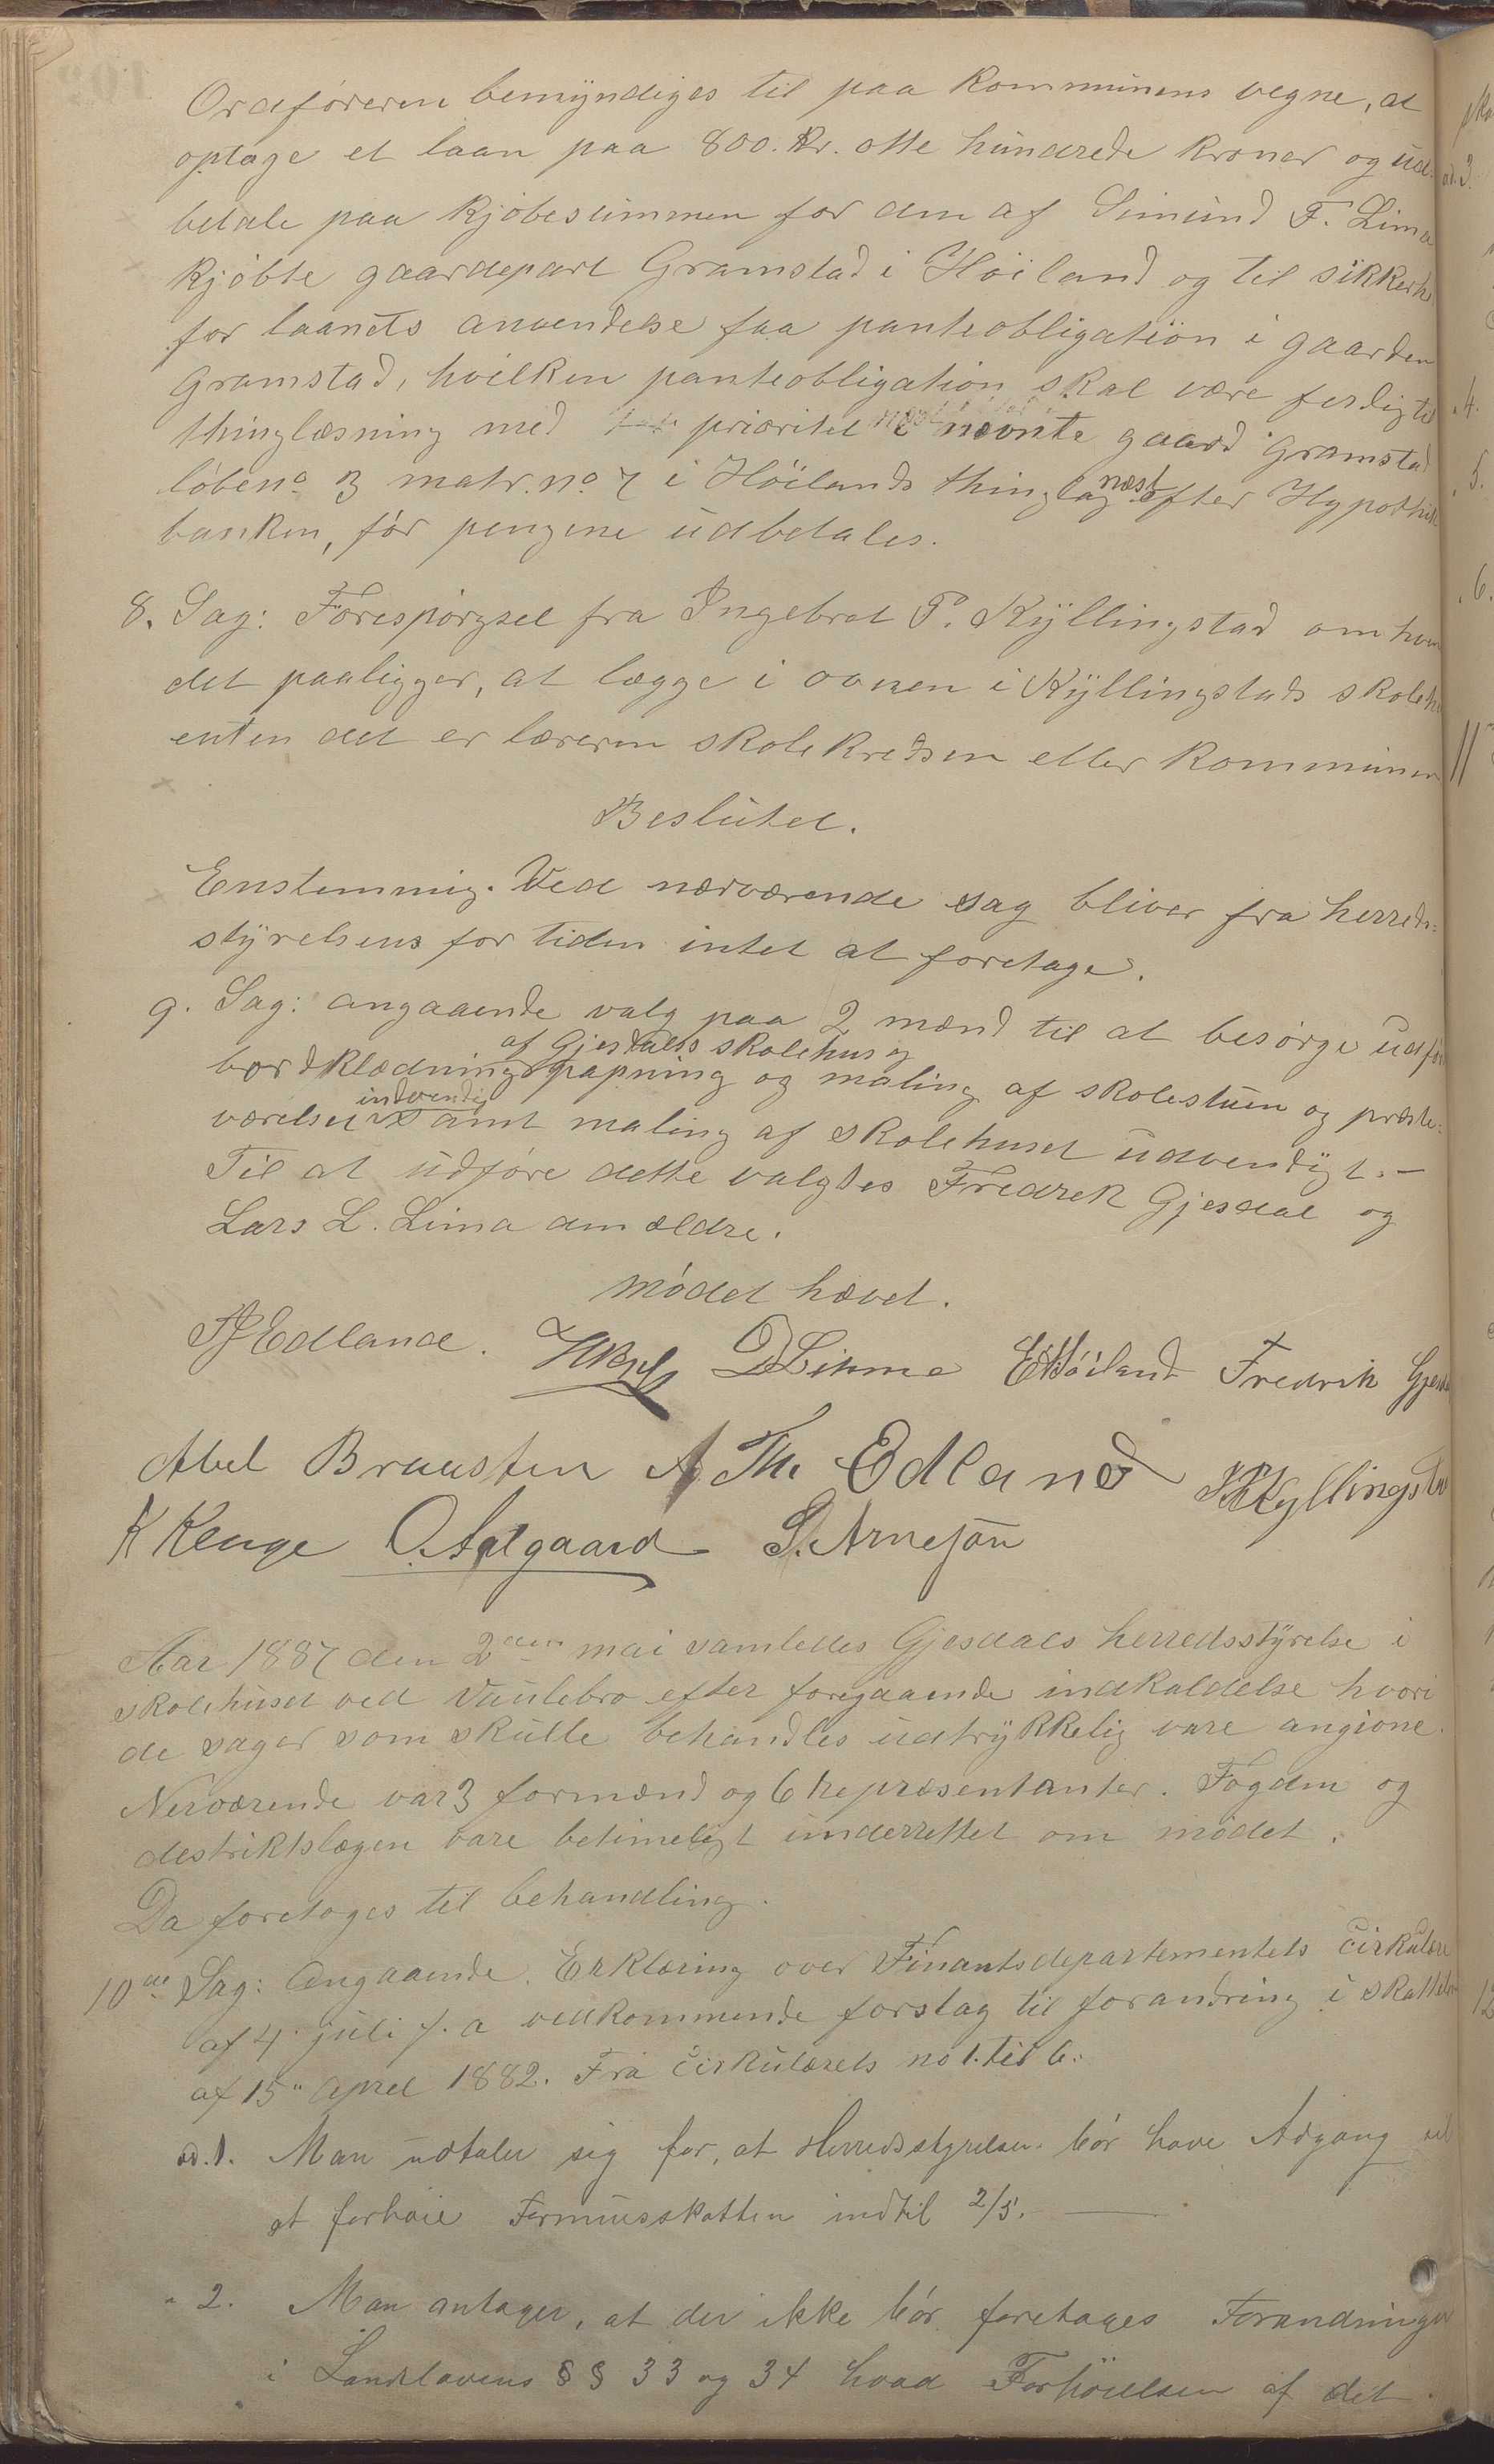 Ordføreren bemyndiges til paa kommunens vegne, at
optage et laan paa 800. kr. otte hundrede kroner og ud-
betale paa kjøbesummen for den af Simund T. Lima
kjøbte gaardepart Gramstad i Höiland og til sikkerhe
for laanets anvendelse faa panteobligation i gaarden
Gramstad, hvilken panteobligation skal være ferdig til
thinglæsning med prioritet i nævnte gaard Gramstad
løbeno. 3 matr. no. 7 i Höilands thinglag næst efter Hypothek
banken, før pengene udbetales.
8. Sag: Forespørgsel fra Ingebret P. Kyllingstad om hvem
det paaligger, at lægge i ovnen i Kyllingstads skolehu
enten det er læreren skolekredsen eller kommunen
Beslutet.
Enstemmig. Ved nærværende sag bliver fra herreds-
styrelsens for tiden intet at foretage.
9. Sag: angaaende valg paa 2 mænd til at besørge udfør
af Gjesdals skolehus og
bordklædning papning og maling af skolestuen og præste-
indvendig
værelset samt maling af skolehuset udvendigt. —
Til at udføre dette valgtes Fredrek Gjesdal og
Lars L. Lima den ældre.
Mødet hævet.
Edland. D Limme E Höiland Fredrik Gjesda
Abel Bruusten A Th. Edland Kyllingsta
K Kenge O. Aalgaard S. Arneson
Aar 1887 den 2den mai samledes Gjesdals herredsstyrelse i
skolehuset ved Vaulebro efter foregaaende indkaldelse hvori
de sager som skulle behandles udtrykkelig vare angivne.
Nerværende var 3 formænd og 6 repræsentanter. Fogden og
destriktslægen vare betimeligt underrettet om mødet.
Da foretoges til behandling.
10de Sag: Angaaende Erklæring over Finantsdepartementets Cirkulære
af 4. juli f. a vedkommende forslag til forandring i skattelov
af 15" April 1882. Fra Cirkulærets no 1. til 6.
ad. 1. Man udtaler sig for, at Herredsstyrelsen bør have Adgang til
at forhøie Formuesskatten indtil 2/5. —
" 2. Man antager, at der ikke bør foretages Forandringer
i Landslovens § § 33 og 34 hvad Forhöielsen af det